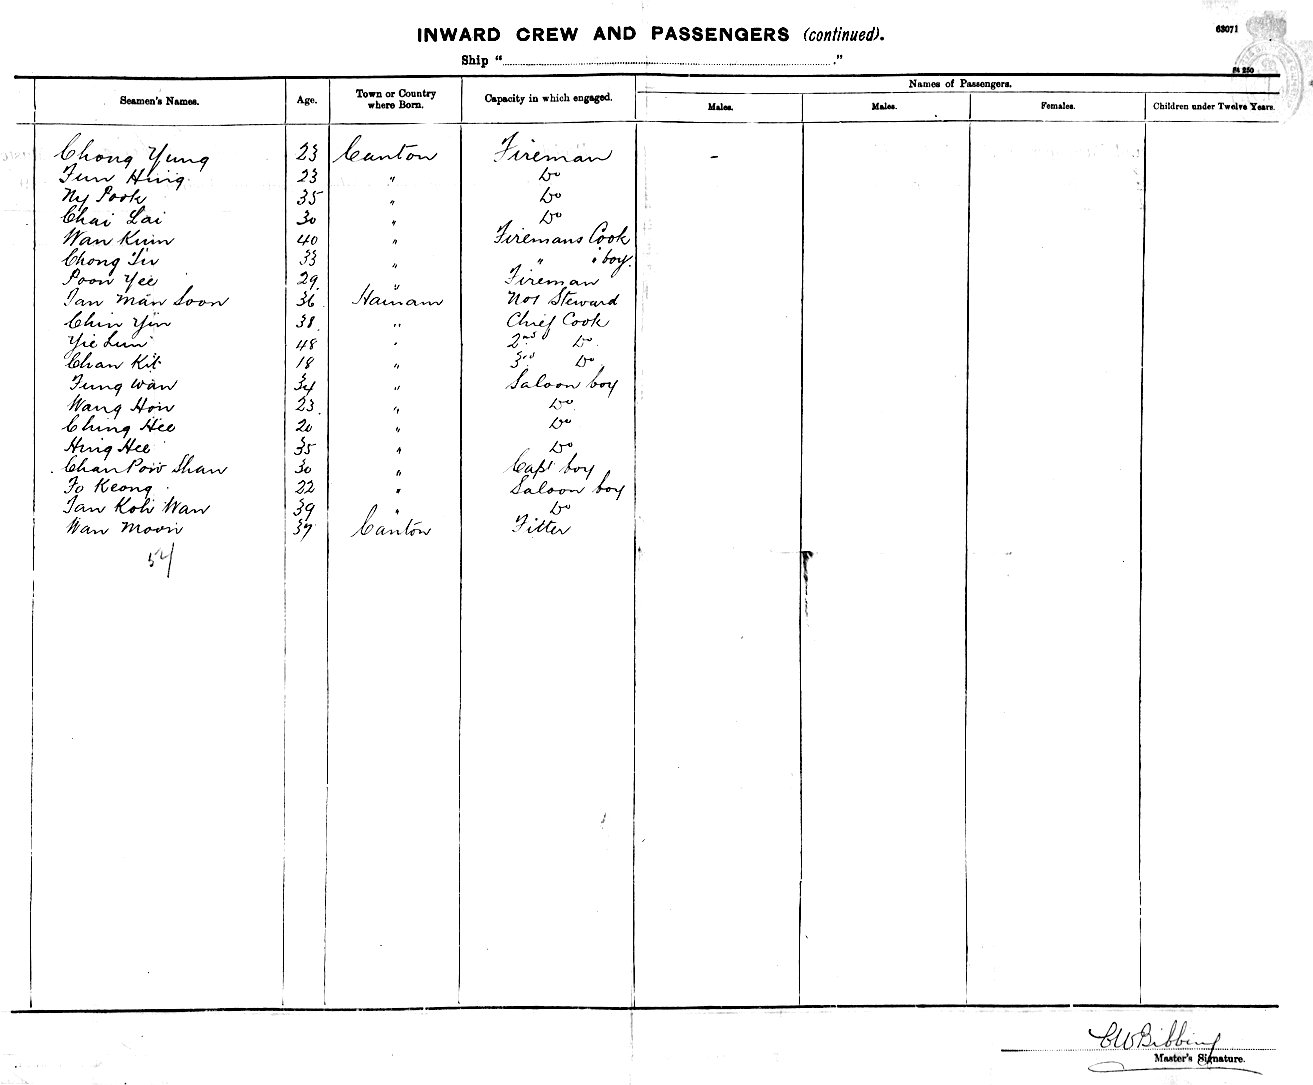 INWARD CREW AND PASSENGERS (continued).
63071
Ship "                ."
Seamen's Names. Age. Town or Country where Born. Capacity in which engaged. Names of Passengers.
Males. Males. Females. Children under Twelve Years.
Chong Yung 23 Canton Fireman -
Fun Hing 23 " Do
Ny Pook 35 " Do
Chai Lai 30 " Do
Wan Kum 40 " Firemans Cook
Chong 33 " " " boy.
Poon Yee 29 " Fireman
Tan Man Soon 36 Hainam No1 Steward
Chin Yin 38 " Chief Cook
Yie Lun 48 " 2nd Do
Chan Kit 18 " 3rd Do
Fung Wan 34 " Saloon boy
Wang Hon 23 " Do
Ching Hee 20 " Do
Hing Hee 35 " Do
Chan Pow Shan 30 " Capt boy
Fo Keong 22 " Saloon boy
Tan Koh Wan 39 " Do
Wan Moon 37 Canton Fitter
CW Bibbing
Master's Signature.